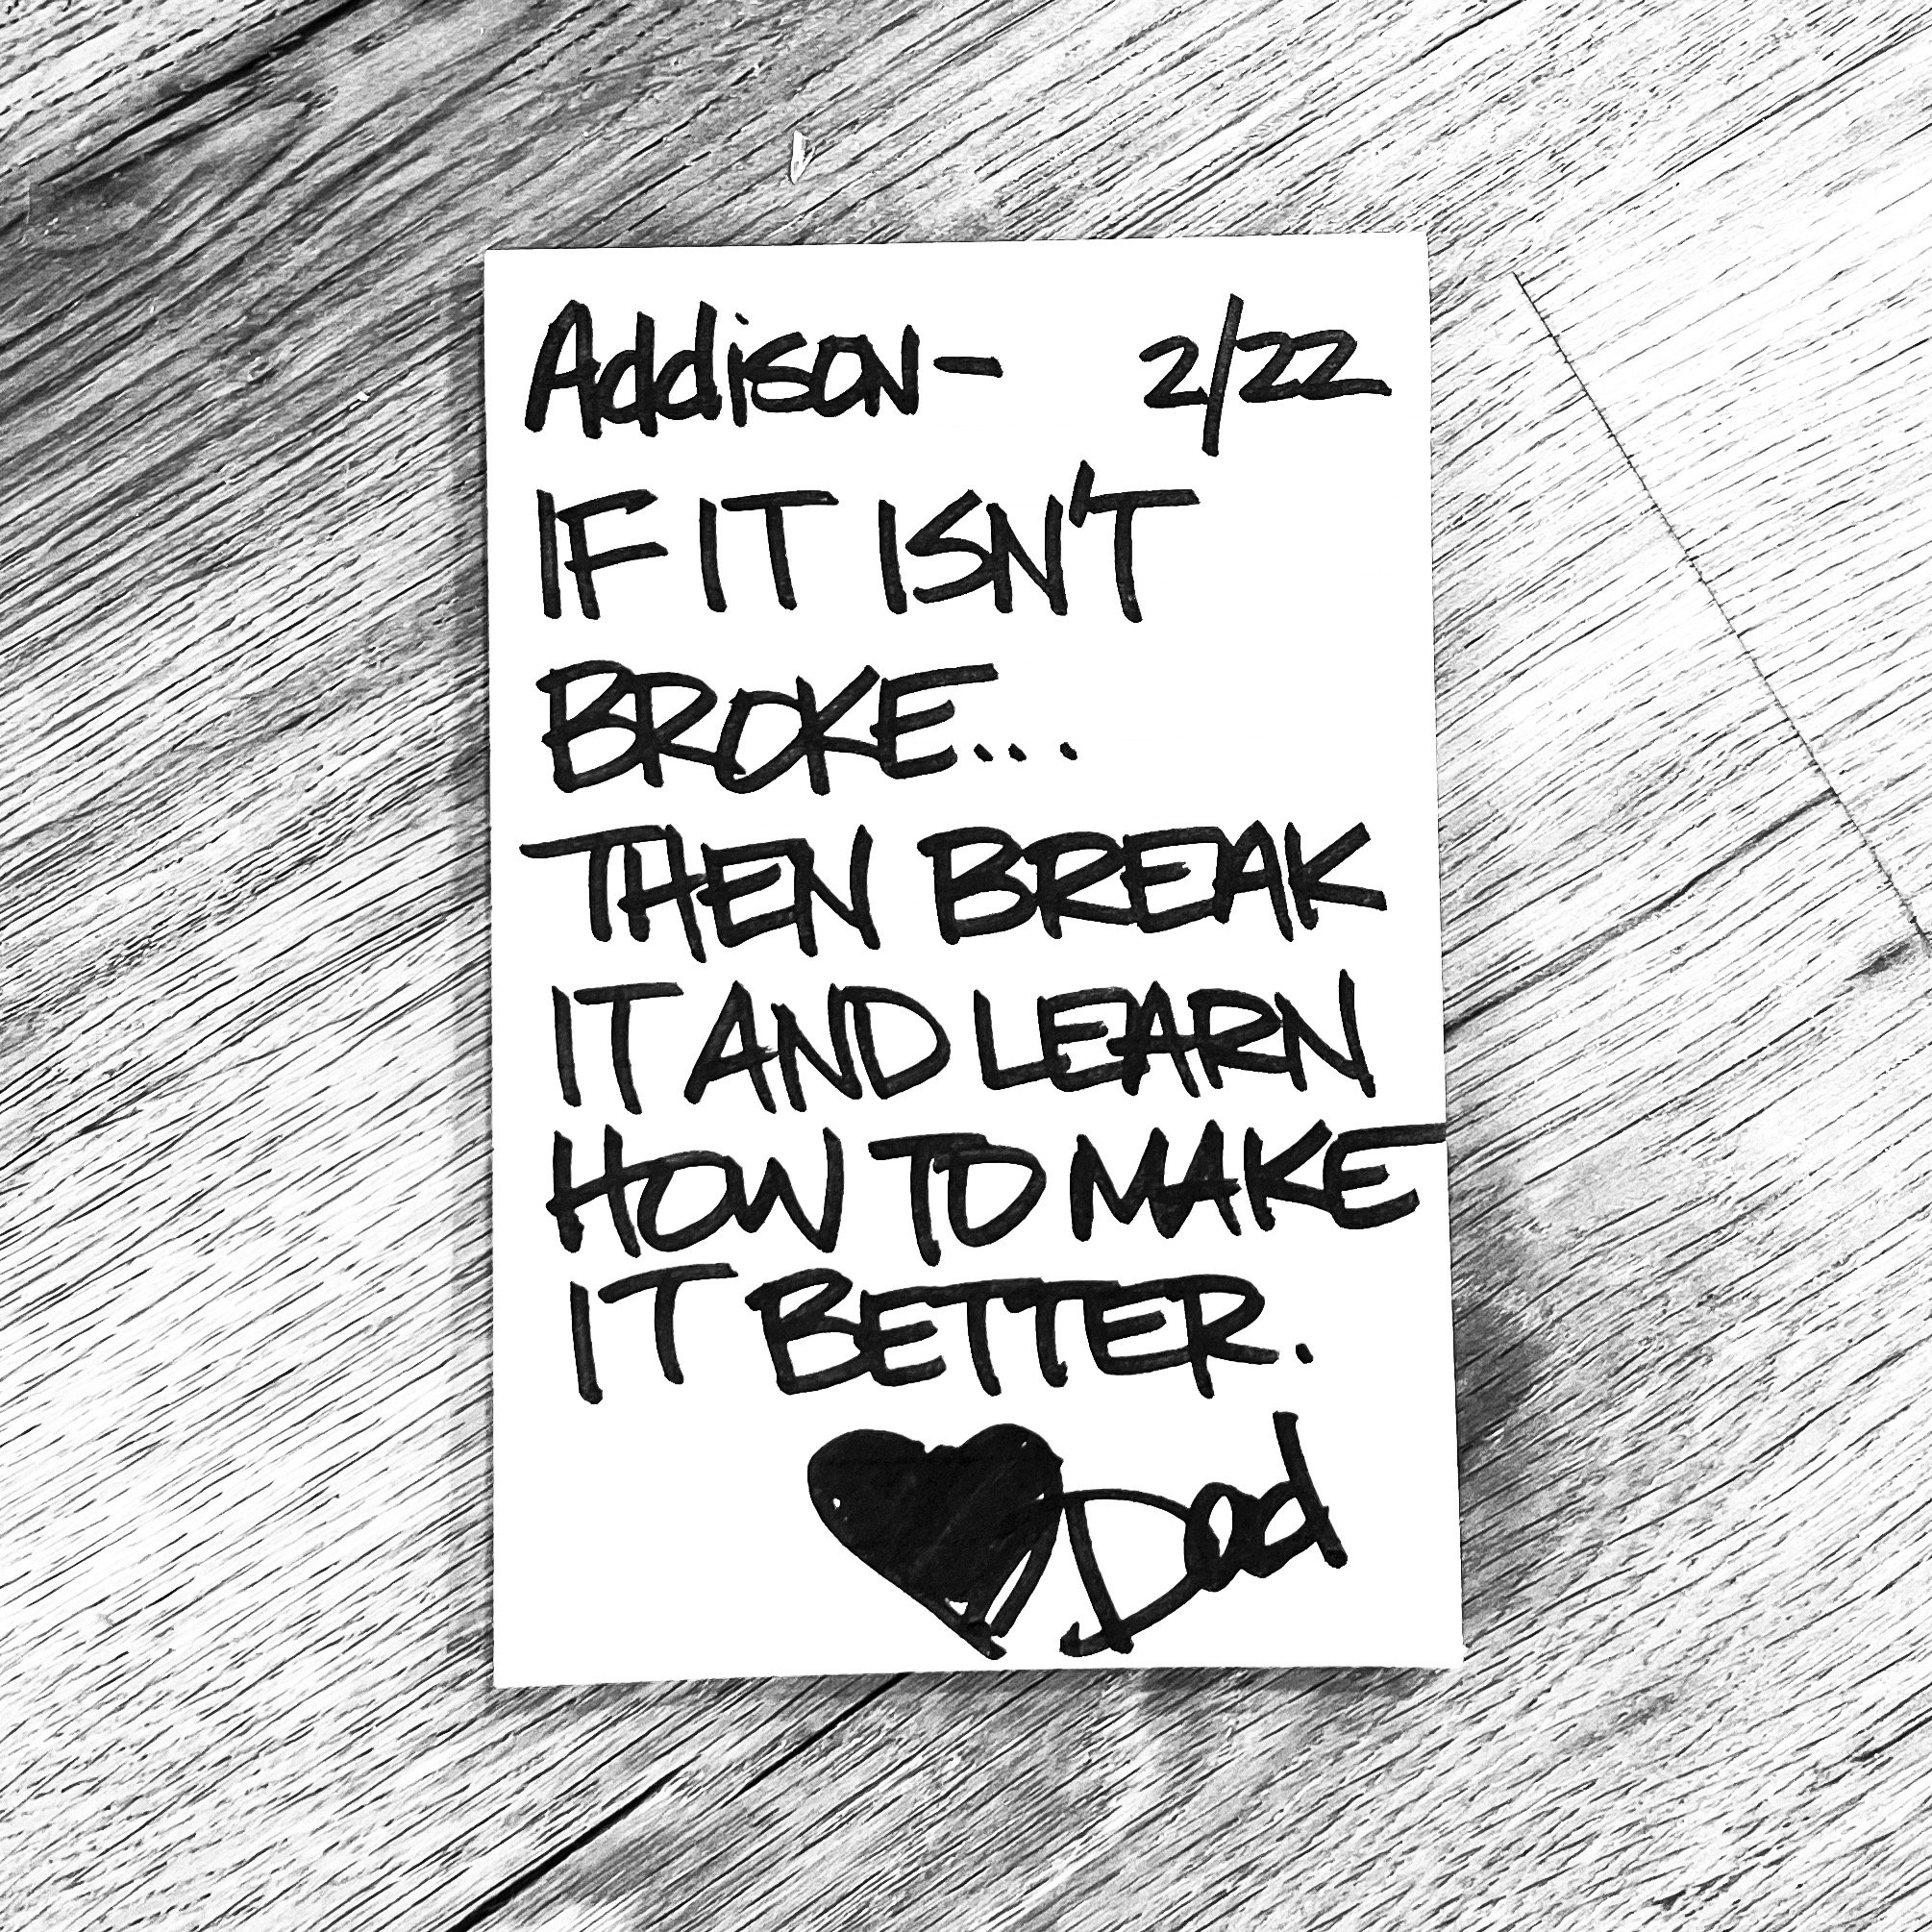 Addison- 2/22
IF IT ISN'T
BROKE...
THEN BREAK
IT AND LEARN
HOW TO MAKE
IT BETTER.
Dad